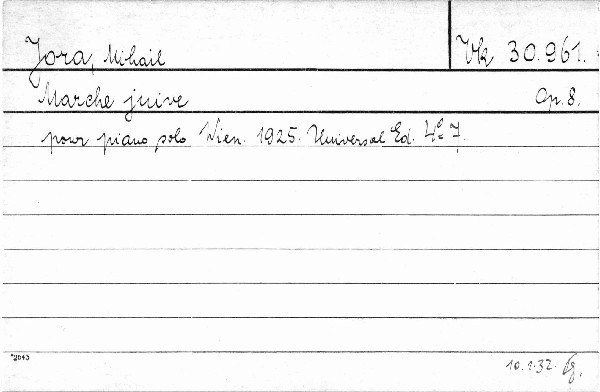 Jora, Mihail
Vk 30.961.
Marche juive Op. 8.
pour piano solo Wien. 1925. Universal Ed. 4º 7.
*2043
10.1.32.